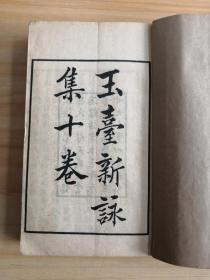 玉臺新詠
集十卷